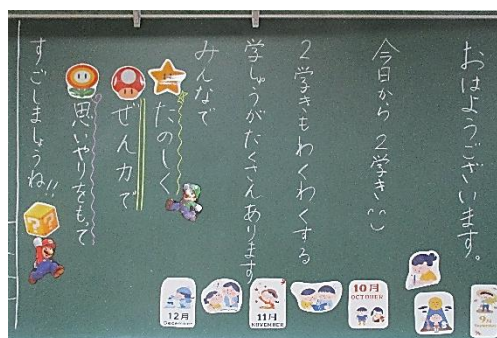 おはようございます。
今日から2学き
2学きもわくわくする
学しゅうがたくさんあります
みんなで
たのしく
ぜん力で
思いやりをもって
すごしましょうね!!
9月
10月
OCTOBER
11月
NOVEMBER
12月
December